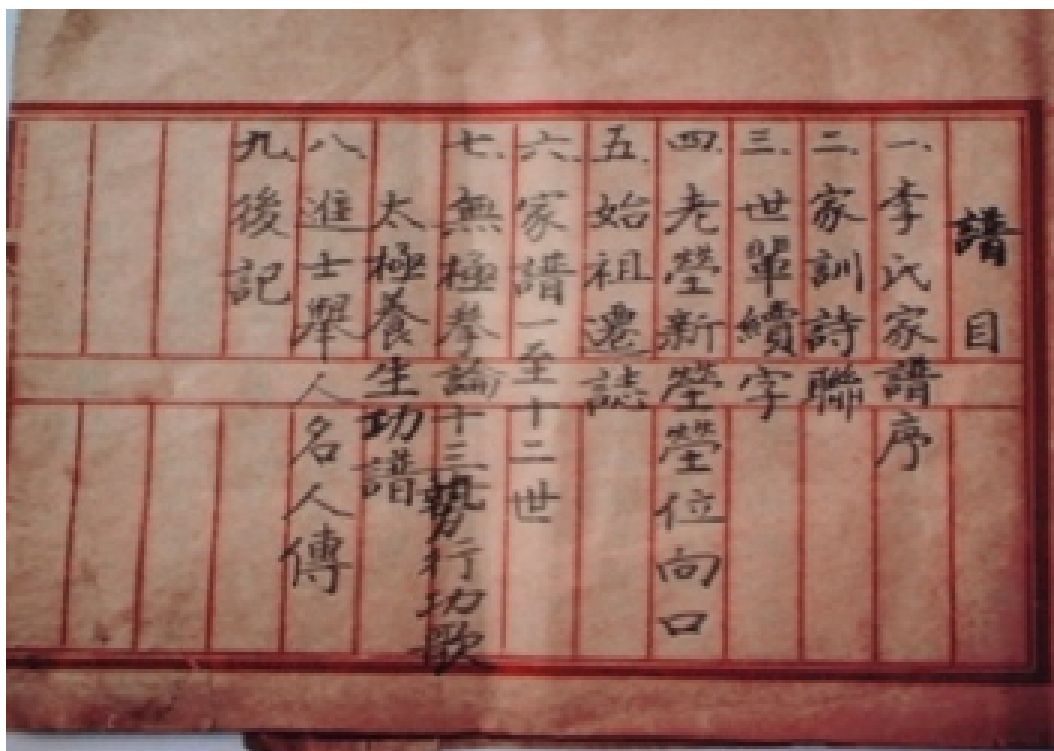 譜目
一.李氏家譜序
二.家訓詩聯
三.世輩續字
四.老塋新塋塋位向口
五.始祖遷誌
六.家譜一至十二世
七.無極拳論十三勢行功歌
太極養生功譜
八.進士舉人名人傳
九.後記